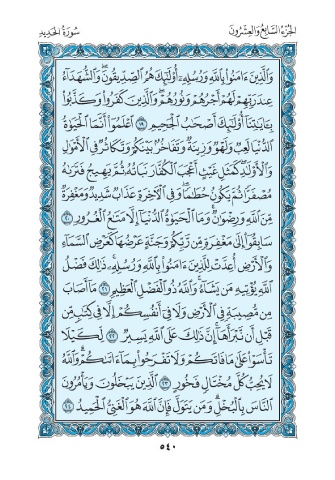 الجزء السابع والعشرون
سورة الحديد
وَالَّذِينَ ءَامَنُوا بِاللَّهِ وَرُسُلِهِ أُولَٰئِكَ هُمُ الصِّدِّيقُونَ وَالشُّهَدَاءُ
عِندَ رَبِّهِمْ لَهُمْ أَجْرُهُمْ وَنُورُهُمْ وَالَّذِينَ كَفَرُوا وَكَذَّبُوا
بِـَٔايَٰتِنَا أُولَٰئِكَ أَصْحَٰبُ الْجَحِيمِ ١٩ اعْلَمُوا أَنَّمَا الْحَيَوٰةُ
الدُّنْيَا لَعِبٌ وَلَهْوٌ وَزِينَةٌ وَتَفَاخُرٌ بَيْنَكُمْ وَتَكَاثُرٌ فِي الْأَمْوَٰلِ
وَالْأَوْلَٰدِ كَمَثَلِ غَيْثٍ أَعْجَبَ الْكُفَّارَ نَبَاتُهُ ثُمَّ يَهِيجُ فَتَرَىٰهُ
مُصْفَرًّا ثُمَّ يَكُونُ حُطَٰمًا وَفِي الْءَاخِرَةِ عَذَابٌ شَدِيدٌ وَمَغْفِرَةٌ
مِّنَ اللَّهِ وَرِضْوَٰنٌ وَمَا الْحَيَوٰةُ الدُّنْيَا إِلَّا مَتَٰعُ الْغُرُورِ ٢٠
سَابِقُوا إِلَىٰ مَغْفِرَةٍ مِّن رَّبِّكُمْ وَجَنَّةٍ عَرْضُهَا كَعَرْضِ السَّمَاءِ
وَالْأَرْضِ أُعِدَّتْ لِلَّذِينَ ءَامَنُوا بِاللَّهِ وَرُسُلِهِ ذَٰلِكَ فَضْلُ
اللَّهِ يُؤْتِيهِ مَن يَشَاءُ وَاللَّهُ ذُو الْفَضْلِ الْعَظِيمِ ٢١ مَا أَصَابَ
مِن مُّصِيبَةٍ فِي الْأَرْضِ وَلَا فِي أَنفُسِكُمْ إِلَّا فِي كِتَٰبٍ مِّن
قَبْلِ أَن نَّبْرَأَهَا إِنَّ ذَٰلِكَ عَلَى اللَّهِ يَسِيرٌ ٢٢ لِّكَيْلَا
تَأْسَوْا عَلَىٰ مَا فَاتَكُمْ وَلَا تَفْرَحُوا بِمَا ءَاتَىٰكُمْ وَاللَّهُ
لَا يُحِبُّ كُلَّ مُخْتَالٍ فَخُورٍ ٢٣ الَّذِينَ يَبْخَلُونَ وَيَأْمُرُونَ
النَّاسَ بِالْبُخْلِ وَمَن يَتَوَلَّ فَإِنَّ اللَّهَ هُوَ الْغَنِيُّ الْحَمِيدُ ٢٤
٥٤٠